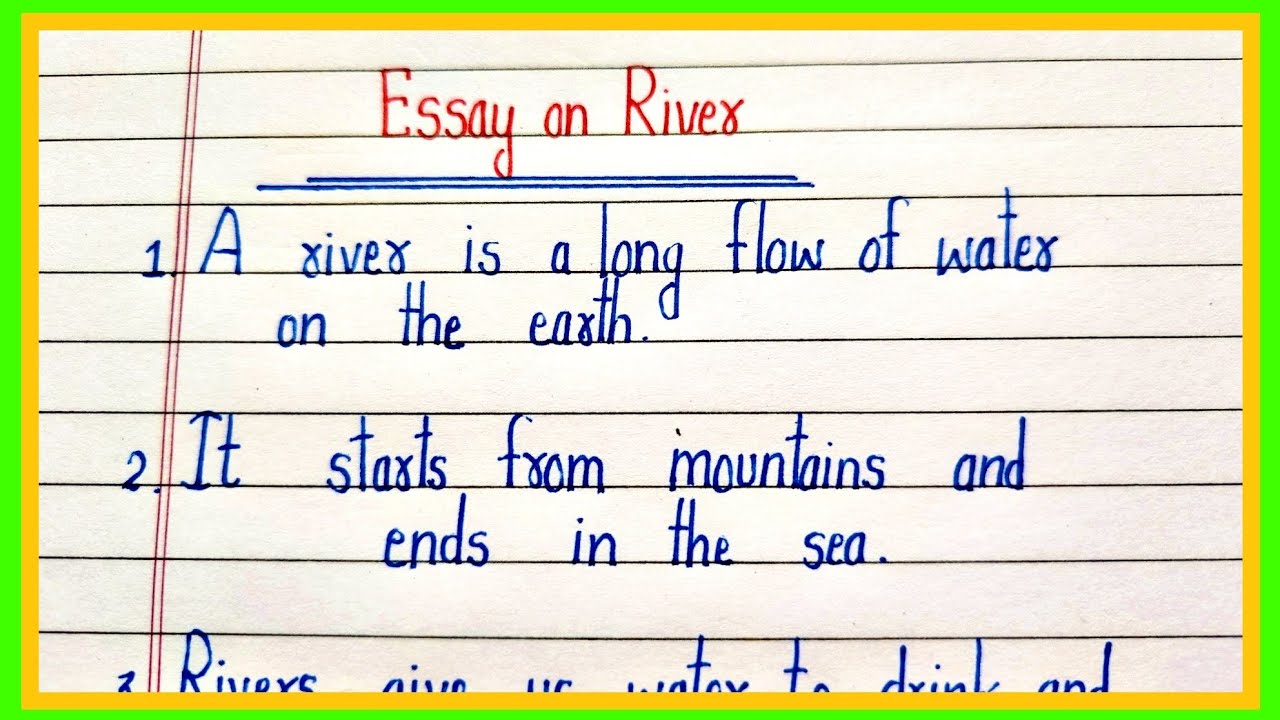 Essay on River
1. A river is a long flow of water
on the earth.
2. It starts from mountains and
ends in the sea.
3. Rivers give us water to drink and